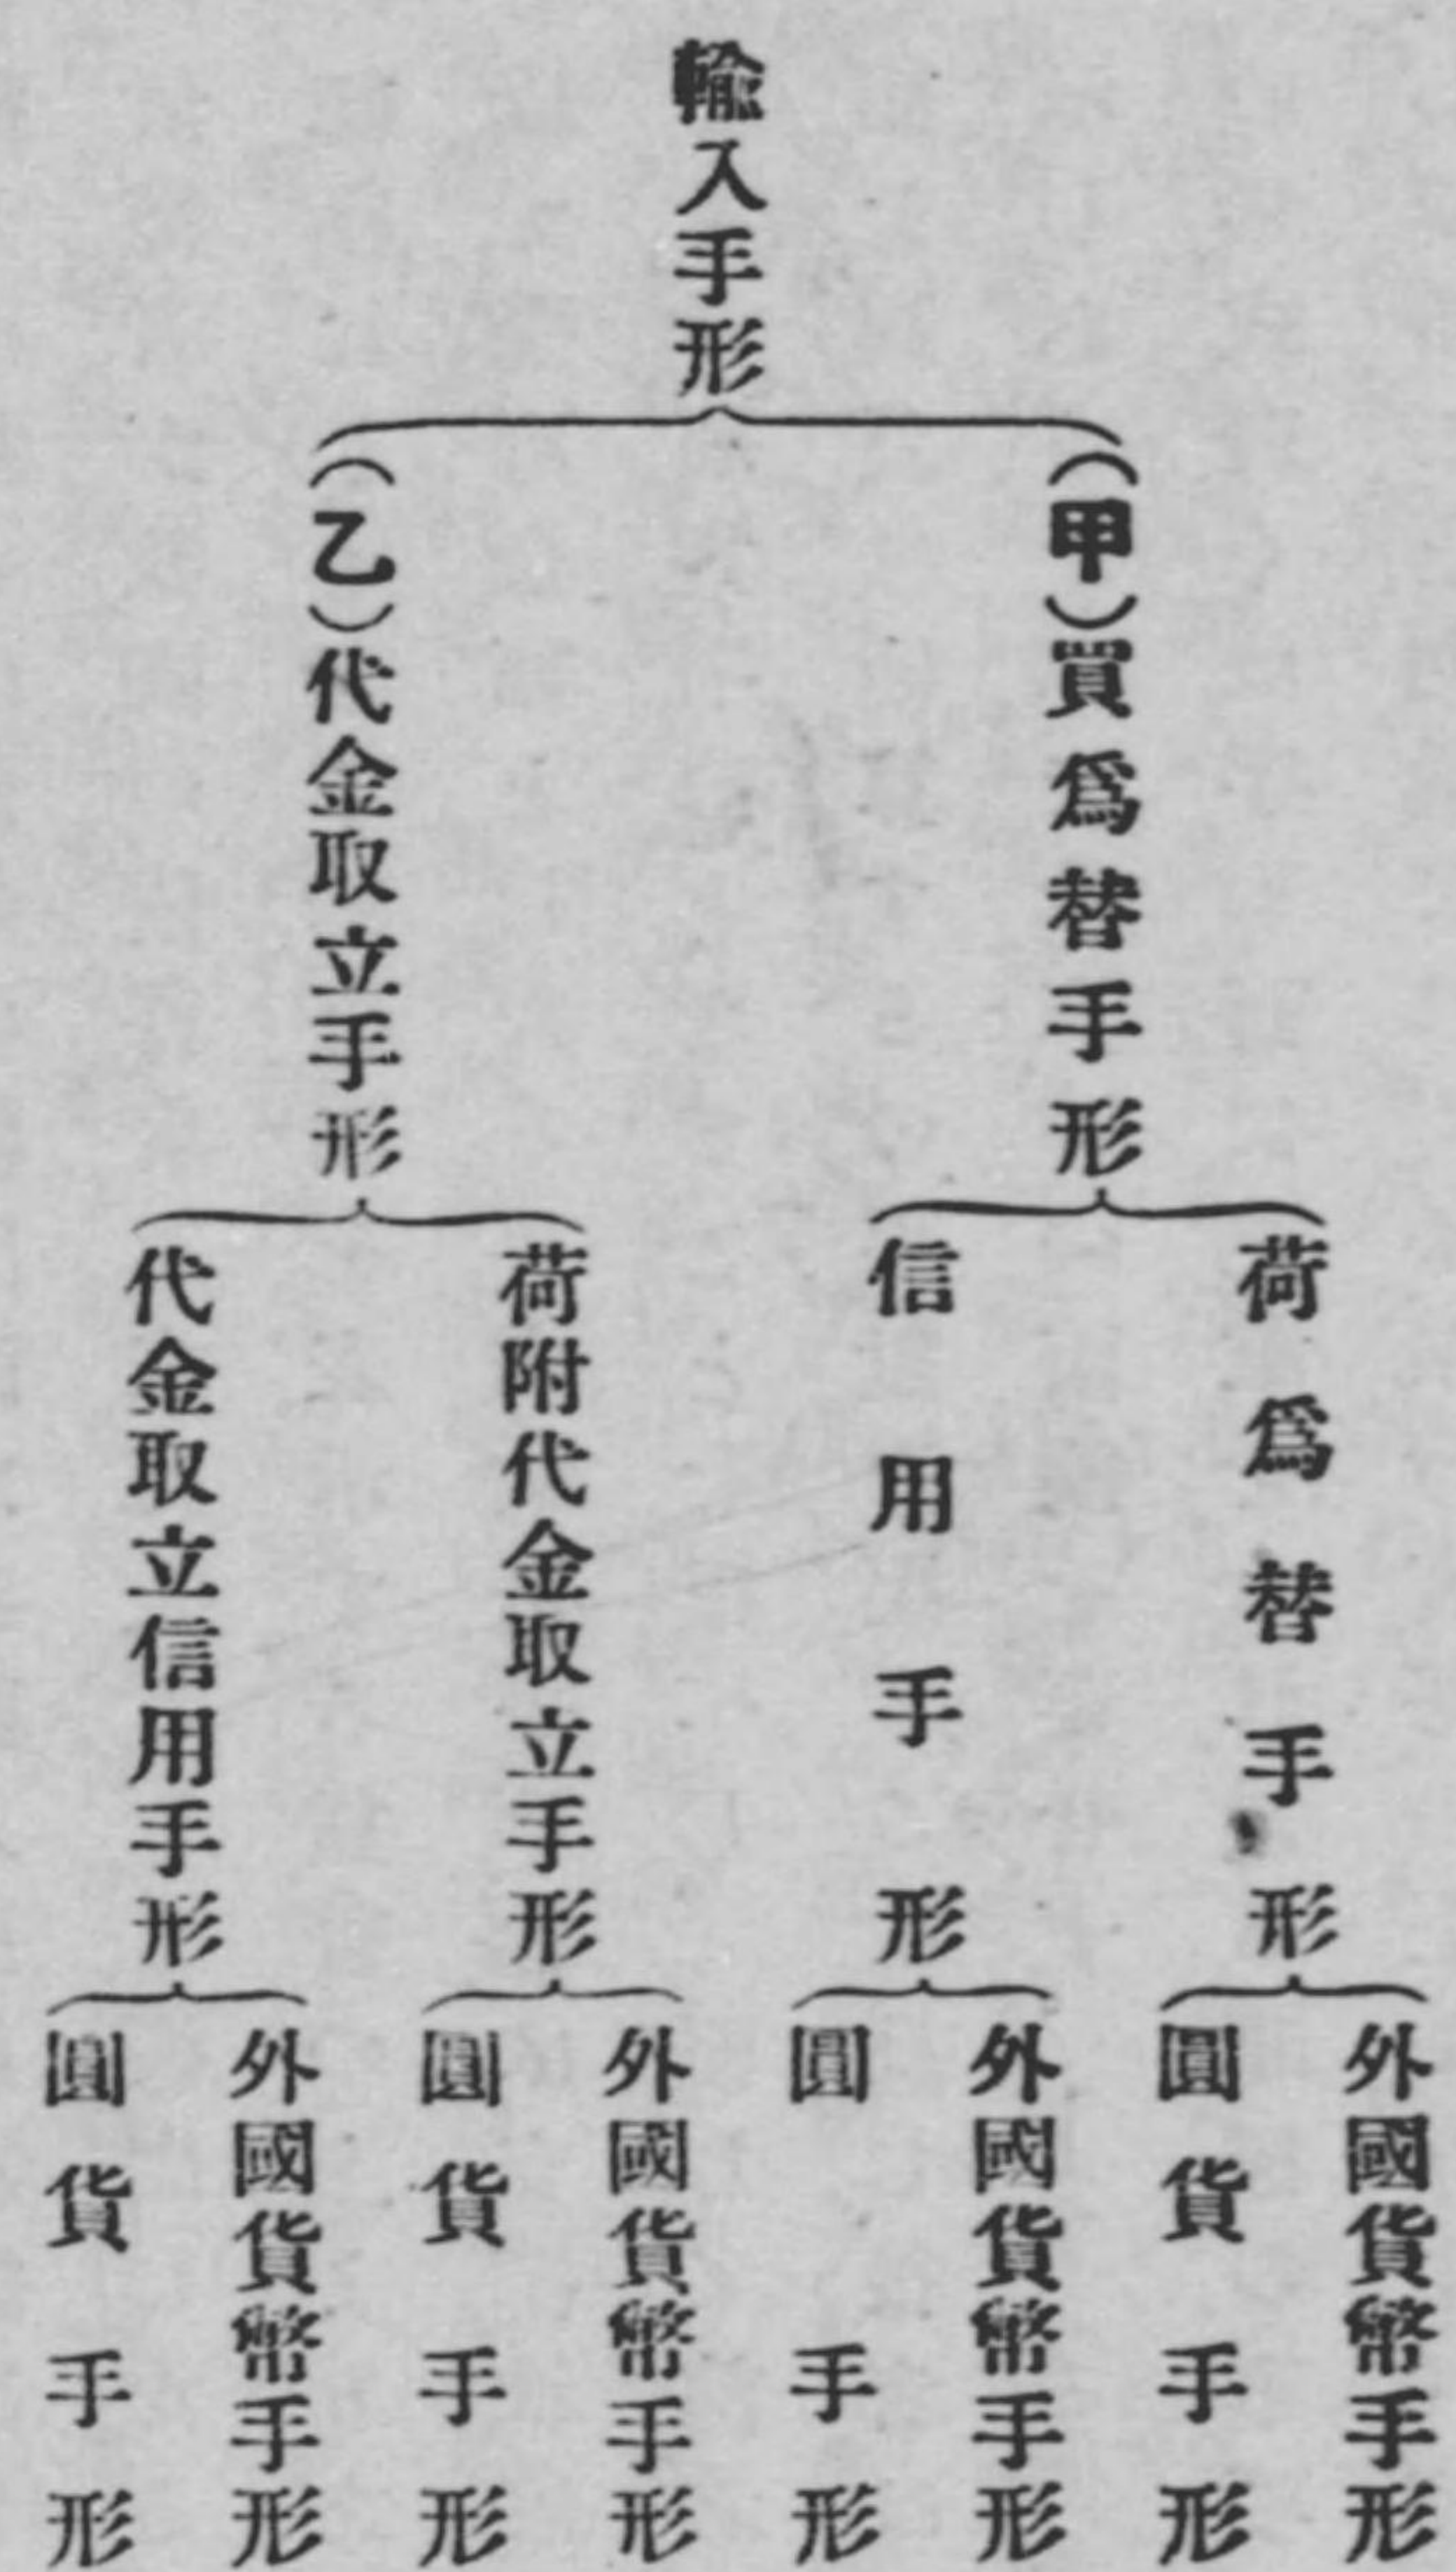 輸入手形
(甲)買爲替手形
荷爲替手形
外國貨幣手形
圓貨手形
信用手形
外國貨幣手形
圓手形
(乙)代金取立手形
荷附代金取立手形
外國貨幣手形
圓貨手形
代金取立信用手形
外國貨幣手形
圓貨手形